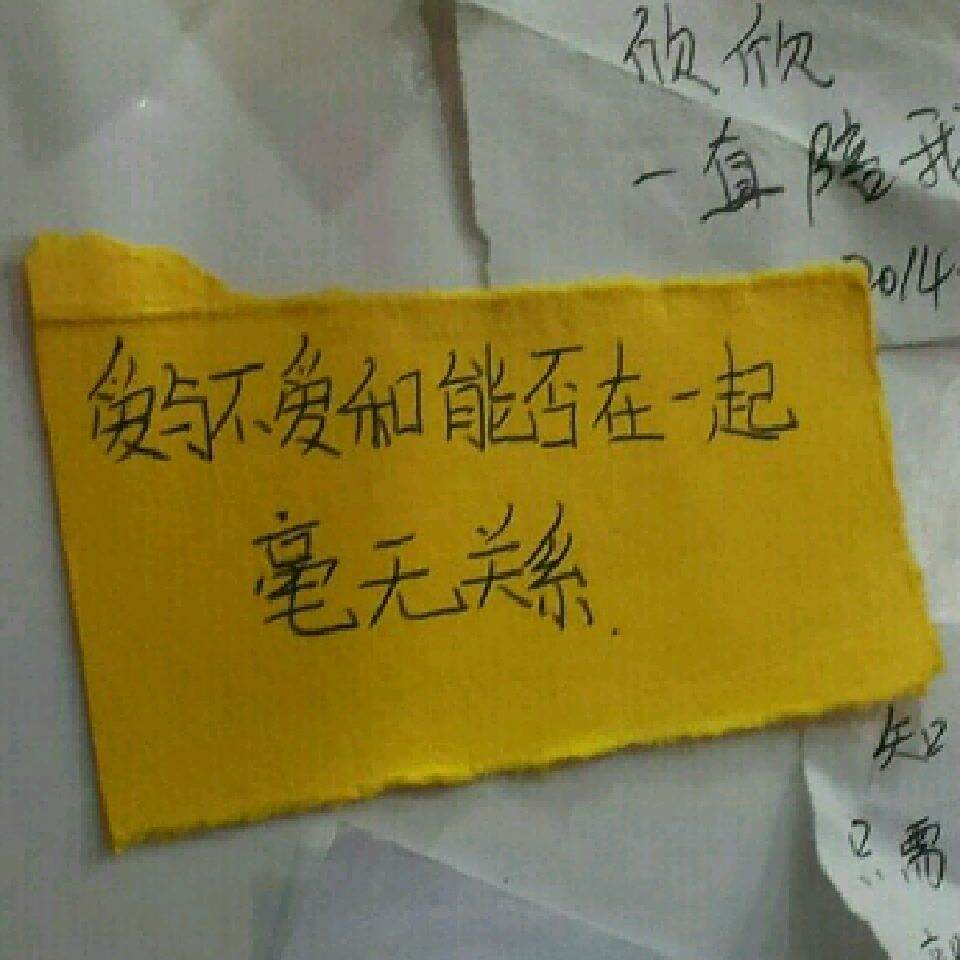 欣欣
一直陪我
2014.
爱与不爱和能否在一起
毫无关系.
知
只需